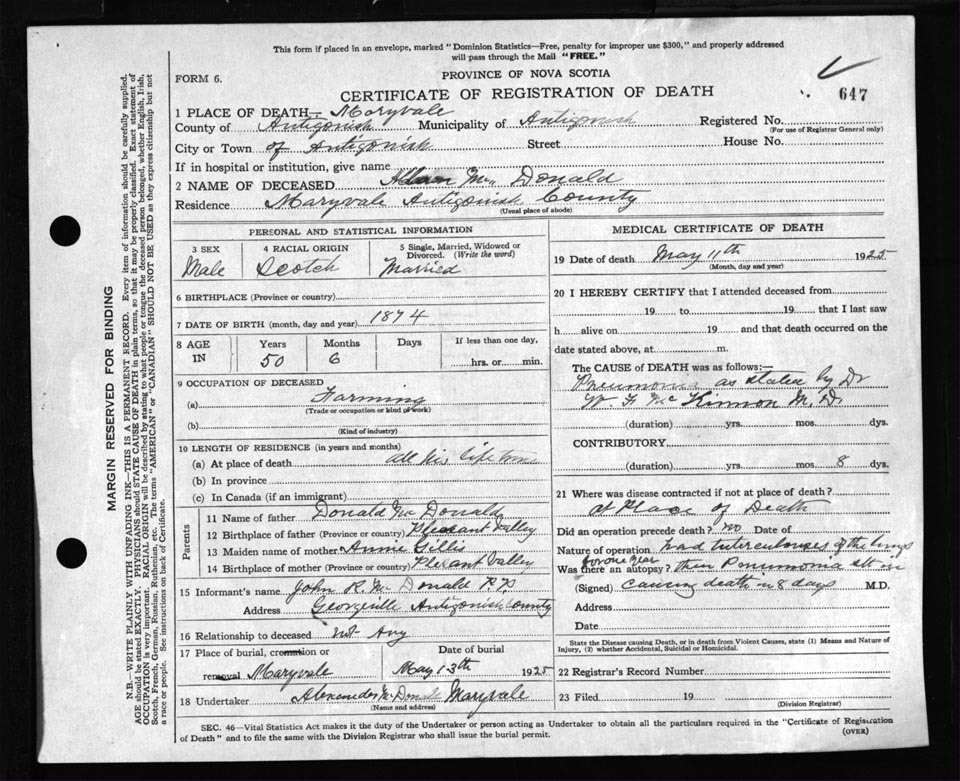 This form if placed in an envelope, marked "Dominion Statistics—Free, penalty for improper use $300," and properly addressed
will pass through the Mail "FREE."
FORM 6.
PROVINCE OF NOVA SCOTIA
CERTIFICATE OF REGISTRATION OF DEATH
647
1 PLACE OF DEATH— Maryvale
County of Antigonish Municipality of Antigonish Registered No.
(For use of Registrar General only)
City or Town of Antigonish Street House No.
If in hospital or institution, give name
2 NAME OF DECEASED Mc Donald
Residence Maryvale Antigonish County
(Usual place of abode)
PERSONAL AND STATISTICAL INFORMATION
3 SEX 4 RACIAL ORIGIN 5 Single, Married, Widowed or Divorced. (Write the word)
Male Scotch Married
6 BIRTHPLACE (Province or country)
7 DATE OF BIRTH (month, day and year) 1874
8 AGE IN Years Months Days If less than one day,
50 6 hrs. or min.
9 OCCUPATION OF DECEASED
(a) Farming
(Trade or occupation or kind of work)
(b)
(Kind of industry)
10 LENGTH OF RESIDENCE (in years and months)
(a) At place of death all his life time
(b) In province
(c) In Canada (if an immigrant)
Parents
11 Name of father Donald Mc Donald
12 Birthplace of father (Province or country) Pleasant Valley
13 Maiden name of mother Annie Gillis
14 Birthplace of mother (Province or country) Plesant Valley
15 Informant's name John R. Mc Donald P.P.
Address Georgeville Antigonish County
16 Relationship to deceased not Any
17 Place of burial, cremation or removal Date of burial
Maryvale May 13th 1925
18 Undertaker Alexander Mc Donald Maryvale
(Name and address)
MEDICAL CERTIFICATE OF DEATH
19 Date of death May 11th 1925
(Month, day and year)
20 I HEREBY CERTIFY that I attended deceased from
19 to 19 that I last saw
h alive on 19 and that death occurred on the
date stated above, at m.
The CAUSE OF DEATH was as follows:—
Pneumonia as stated by Dr
W. F. Mc Kinnon M. D.
(duration) yrs. mos. dys.
CONTRIBUTORY
(duration) yrs. mos 8 dys.
21 Where was disease contracted if not at place of death?
At Place of Death
Did an operation precede death? No Date of
Nature of operation had tuberculouses of the lungs
for one year
Was there an autopsy? then Pneumonia set in
(Signed) causing death in 8 days M.D.
Address
Date
State the Disease causing Death, or in death from Violent Causes, state (1) Means and Nature of
Injury, (2) whether Accidental, Suicidal or Homicidal.
22 Registrar's Record Number
23 Filed 19
(Division Registrar)
SEC. 46—Vital Statistics Act makes it the duty of the Undertaker or person acting as Undertaker to obtain all the particulars required in the "Certificate of Registration
of Death" and to file the same with the Division Registrar who shall issue the burial permit.
(OVER)
MARGIN RESERVED FOR BINDING
N.B.—WRITE PLAINLY WITH UNFADING INK—THIS IS A PERMANENT RECORD. Every item of information should be carefully supplied.
AGE should be stated EXACTLY. PHYSICIANS should STATE CAUSE OF DEATH in plain terms, so that it may be properly classified. Exact statement of
OCCUPATION is very important. RACIAL ORIGIN will be described by stating to what people or tongue the deceased person belonged, whether English, Irish,
Scotch, French, German, Russian, Ruthenian, etc. The terms "AMERICAN" or "CANADIAN" SHOULD NOT BE USED as they express citizenship but not
a race or people. See instructions on back of Certificate.